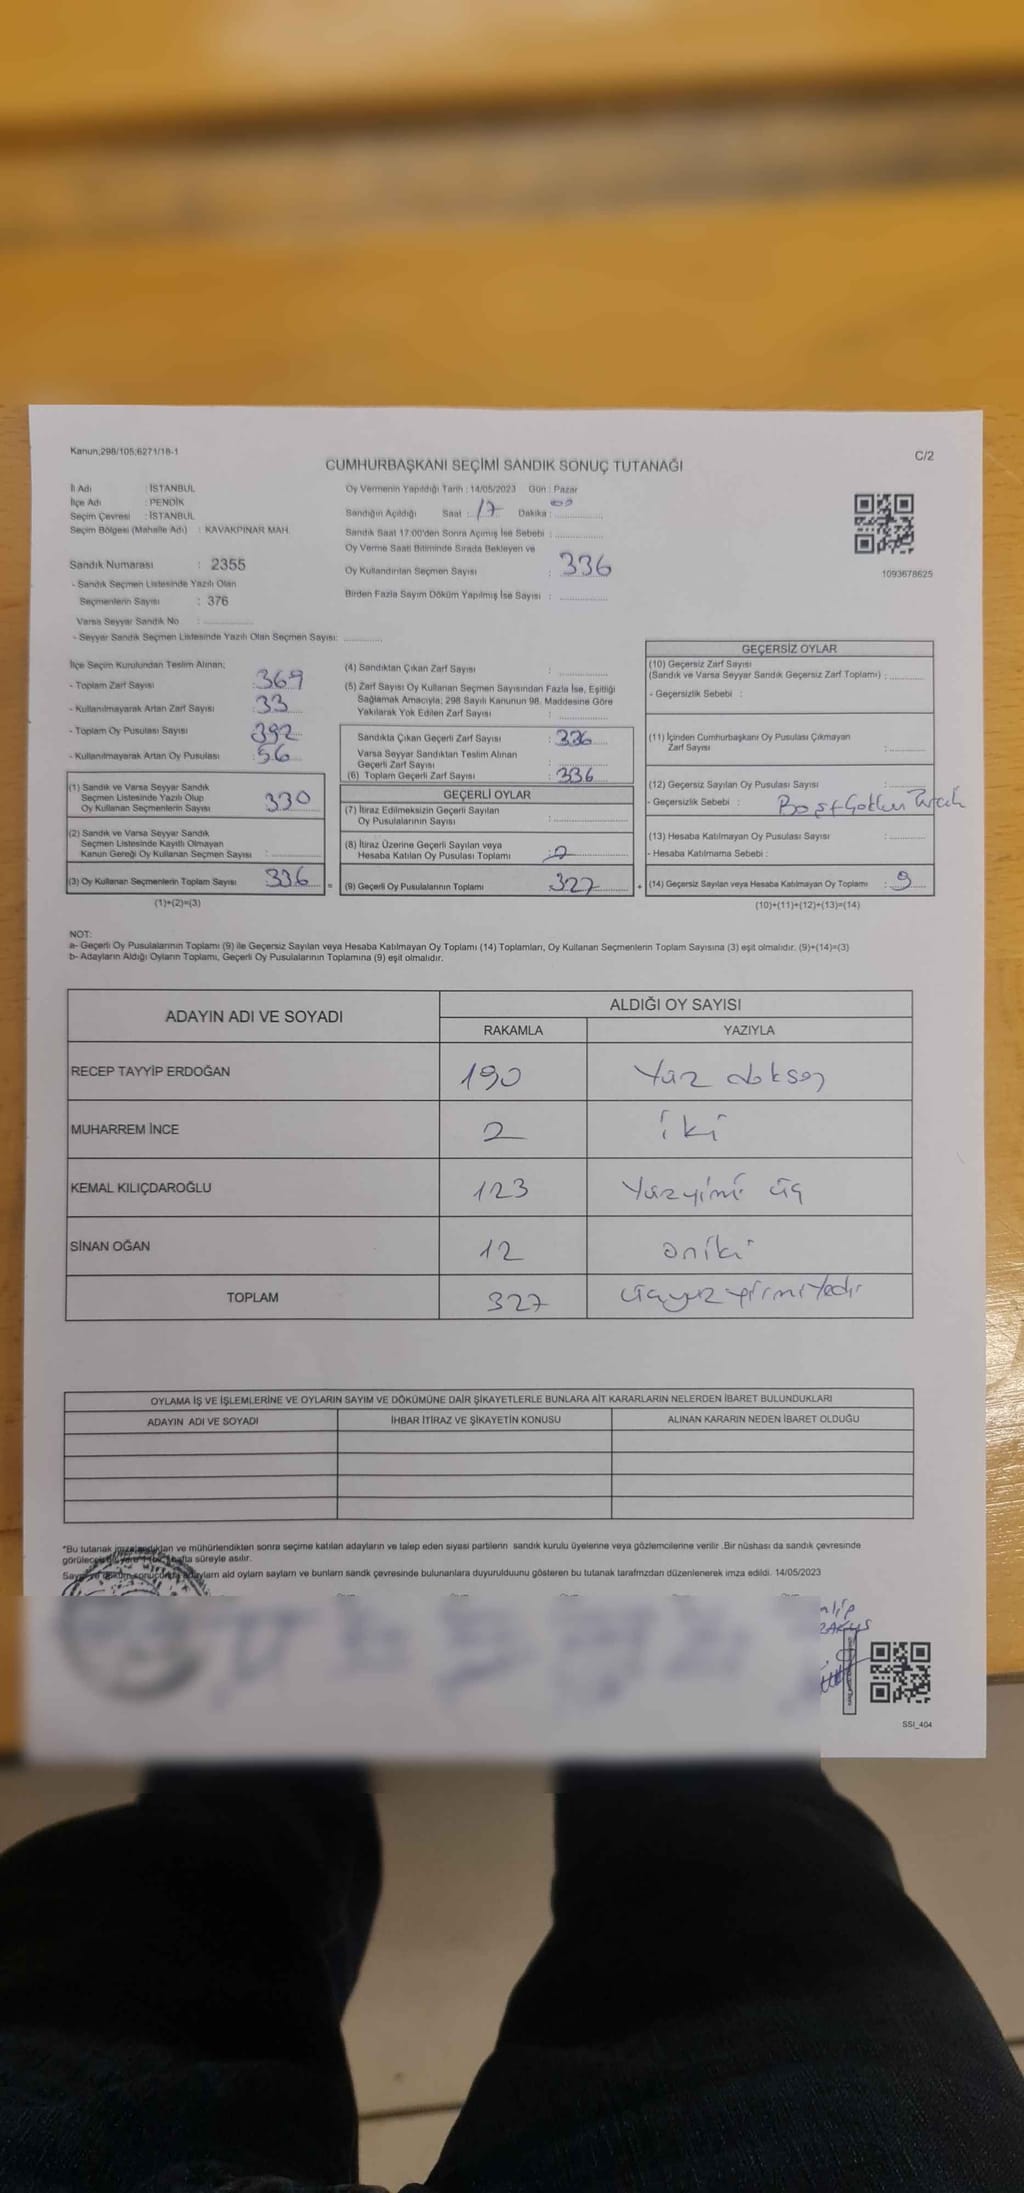 Kanun;298/105;6271/18-1
C/2
CUMHURBAŞKANI SEÇİMİ SANDIK SONUÇ TUTANAĞI
İl Adı : İSTANBUL
İlçe Adı : PENDİK
Seçim Çevresi : İSTANBUL
Seçim Bölgesi (Mahalle Adı) : KAVAKPINAR MAH.
Sandık Numarası : 2355
- Sandık Seçmen Listesinde Yazılı Olan
Seçmenlerin Sayısı : 376
Varsa Seyyar Sandık No :
- Seyyar Sandık Seçmen Listesinde Yazılı Olan Seçmen Sayısı:
Oy Vermenin Yapıldığı Tarih : 14/05/2023 Gün : Pazar
Sandığın Açıldığı Saat : 17 Dakika : 00
Sandık Saat 17:00'den Sonra Açılmış İse Sebebi :
Oy Verme Saati Bitiminde Sırada Bekleyen ve
Oy Kullandırılan Seçmen Sayısı : 336
Birden Fazla Sayım Döküm Yapılmış İse Sayısı :
1093678625
İlçe Seçim Kurulundan Teslim Alınan;
- Toplam Zarf Sayısı : 369
- Kullanılmayarak Artan Zarf Sayısı : 33
- Toplam Oy Pusulası Sayısı : 392
- Kullanılmayarak Artan Oy Pusulası : 56
(1) Sandık ve Varsa Seyyar Sandık
Seçmen Listesinde Yazılı Olup
Oy Kullanan Seçmenlerin Sayısı : 330
(2) Sandık ve Varsa Seyyar Sandık
Seçmen Listesinde Kayıtlı Olmayan
Kanun Gereği Oy Kullanan Seçmen Sayısı :
(3) Oy Kullanan Seçmenlerin Toplam Sayısı : 336
(1)+(2)=(3)
(4) Sandıktan Çıkan Zarf Sayısı :
(5) Zarf Sayısı Oy Kullanan Seçmen Sayısından Fazla İse, Eşitliği
Sağlamak Amacıyla; 298 Sayılı Kanunun 98. Maddesine Göre
Yakılarak Yok Edilen Zarf Sayısı :
Sandıkta Çıkan Geçerli Zarf Sayısı : 336
Varsa Seyyar Sandıktan Teslim Alınan
Geçerli Zarf Sayısı :
(6) Toplam Geçerli Zarf Sayısı : 336
GEÇERLİ OYLAR
(7) İtiraz Edilmeksizin Geçerli Sayılan
Oy Pusulalarının Sayısı :
(8) İtiraz Üzerine Geçerli Sayılan veya
Hesaba Katılan Oy Pusulası Toplamı :
(9) Geçerli Oy Pusulalarının Toplamı : 327
GEÇERSİZ OYLAR
(10) Geçersiz Zarf Sayısı
(Sandık ve Varsa Seyyar Sandık Geçersiz Zarf Toplamı) :
- Geçersizlik Sebebi :
(11) İçinden Cumhurbaşkanı Oy Pusulası Çıkmayan
Zarf Sayısı :
(12) Geçersiz Sayılan Oy Pusulası Sayısı :
- Geçersizlik Sebebi :
(13) Hesaba Katılmayan Oy Pusulası Sayısı :
- Hesaba Katılmama Sebebi :
(14) Geçersiz Sayılan veya Hesaba Katılmayan Oy Toplamı : 9
(10)+(11)+(12)+(13)=(14)
NOT:
a- Geçerli Oy Pusulalarının Toplamı (9) ile Geçersiz Sayılan veya Hesaba Katılmayan Oy Toplamı (14) Toplamları, Oy Kullanan Seçmenlerin Toplam Sayısına (3) eşit olmalıdır. (9)+(14)=(3)
b- Adayların Aldığı Oyların Toplamı, Geçerli Oy Pusulalarının Toplamına (9) eşit olmalıdır.
ADAYIN ADI VE SOYADI ALDIĞI OY SAYISI
RAKAMLA YAZIYLA
RECEP TAYYİP ERDOĞAN 190 Yüz doksan
MUHARREM İNCE 2 iki
KEMAL KILIÇDAROĞLU 123 Yüzyimi üç
SİNAN OĞAN 12 oniki
TOPLAM 327 üçyüz yirmiYedi
OYLAMA İŞ VE İŞLEMLERİNE VE OYLARIN SAYIM VE DÖKÜMÜNE DAİR ŞİKAYETLERLE BUNLARA AİT KARARLARIN NELERDEN İBARET BULUNDUKLARI
ADAYIN ADI VE SOYADI İHBAR İTİRAZ VE ŞİKAYETİN KONUSU ALINAN KARARIN NEDEN İBARET OLDUĞU
*Bu tutanak imzalandıktan ve mühürlendikten sonra seçime katılan adayların ve talep eden siyasi partilerin sandık kurulu üyelerine veya gözlemcilerine verilir .Bir nüshası da sandık çevresinde
hafta süreyle asılır.
ald oylarn saylarn ve bunlarn sandk çevresinde bulunanlara duyurulduunu gösteren bu tutanak tarafmzdan düzenlenerek imza edildi. 14/05/2023
SSI_404